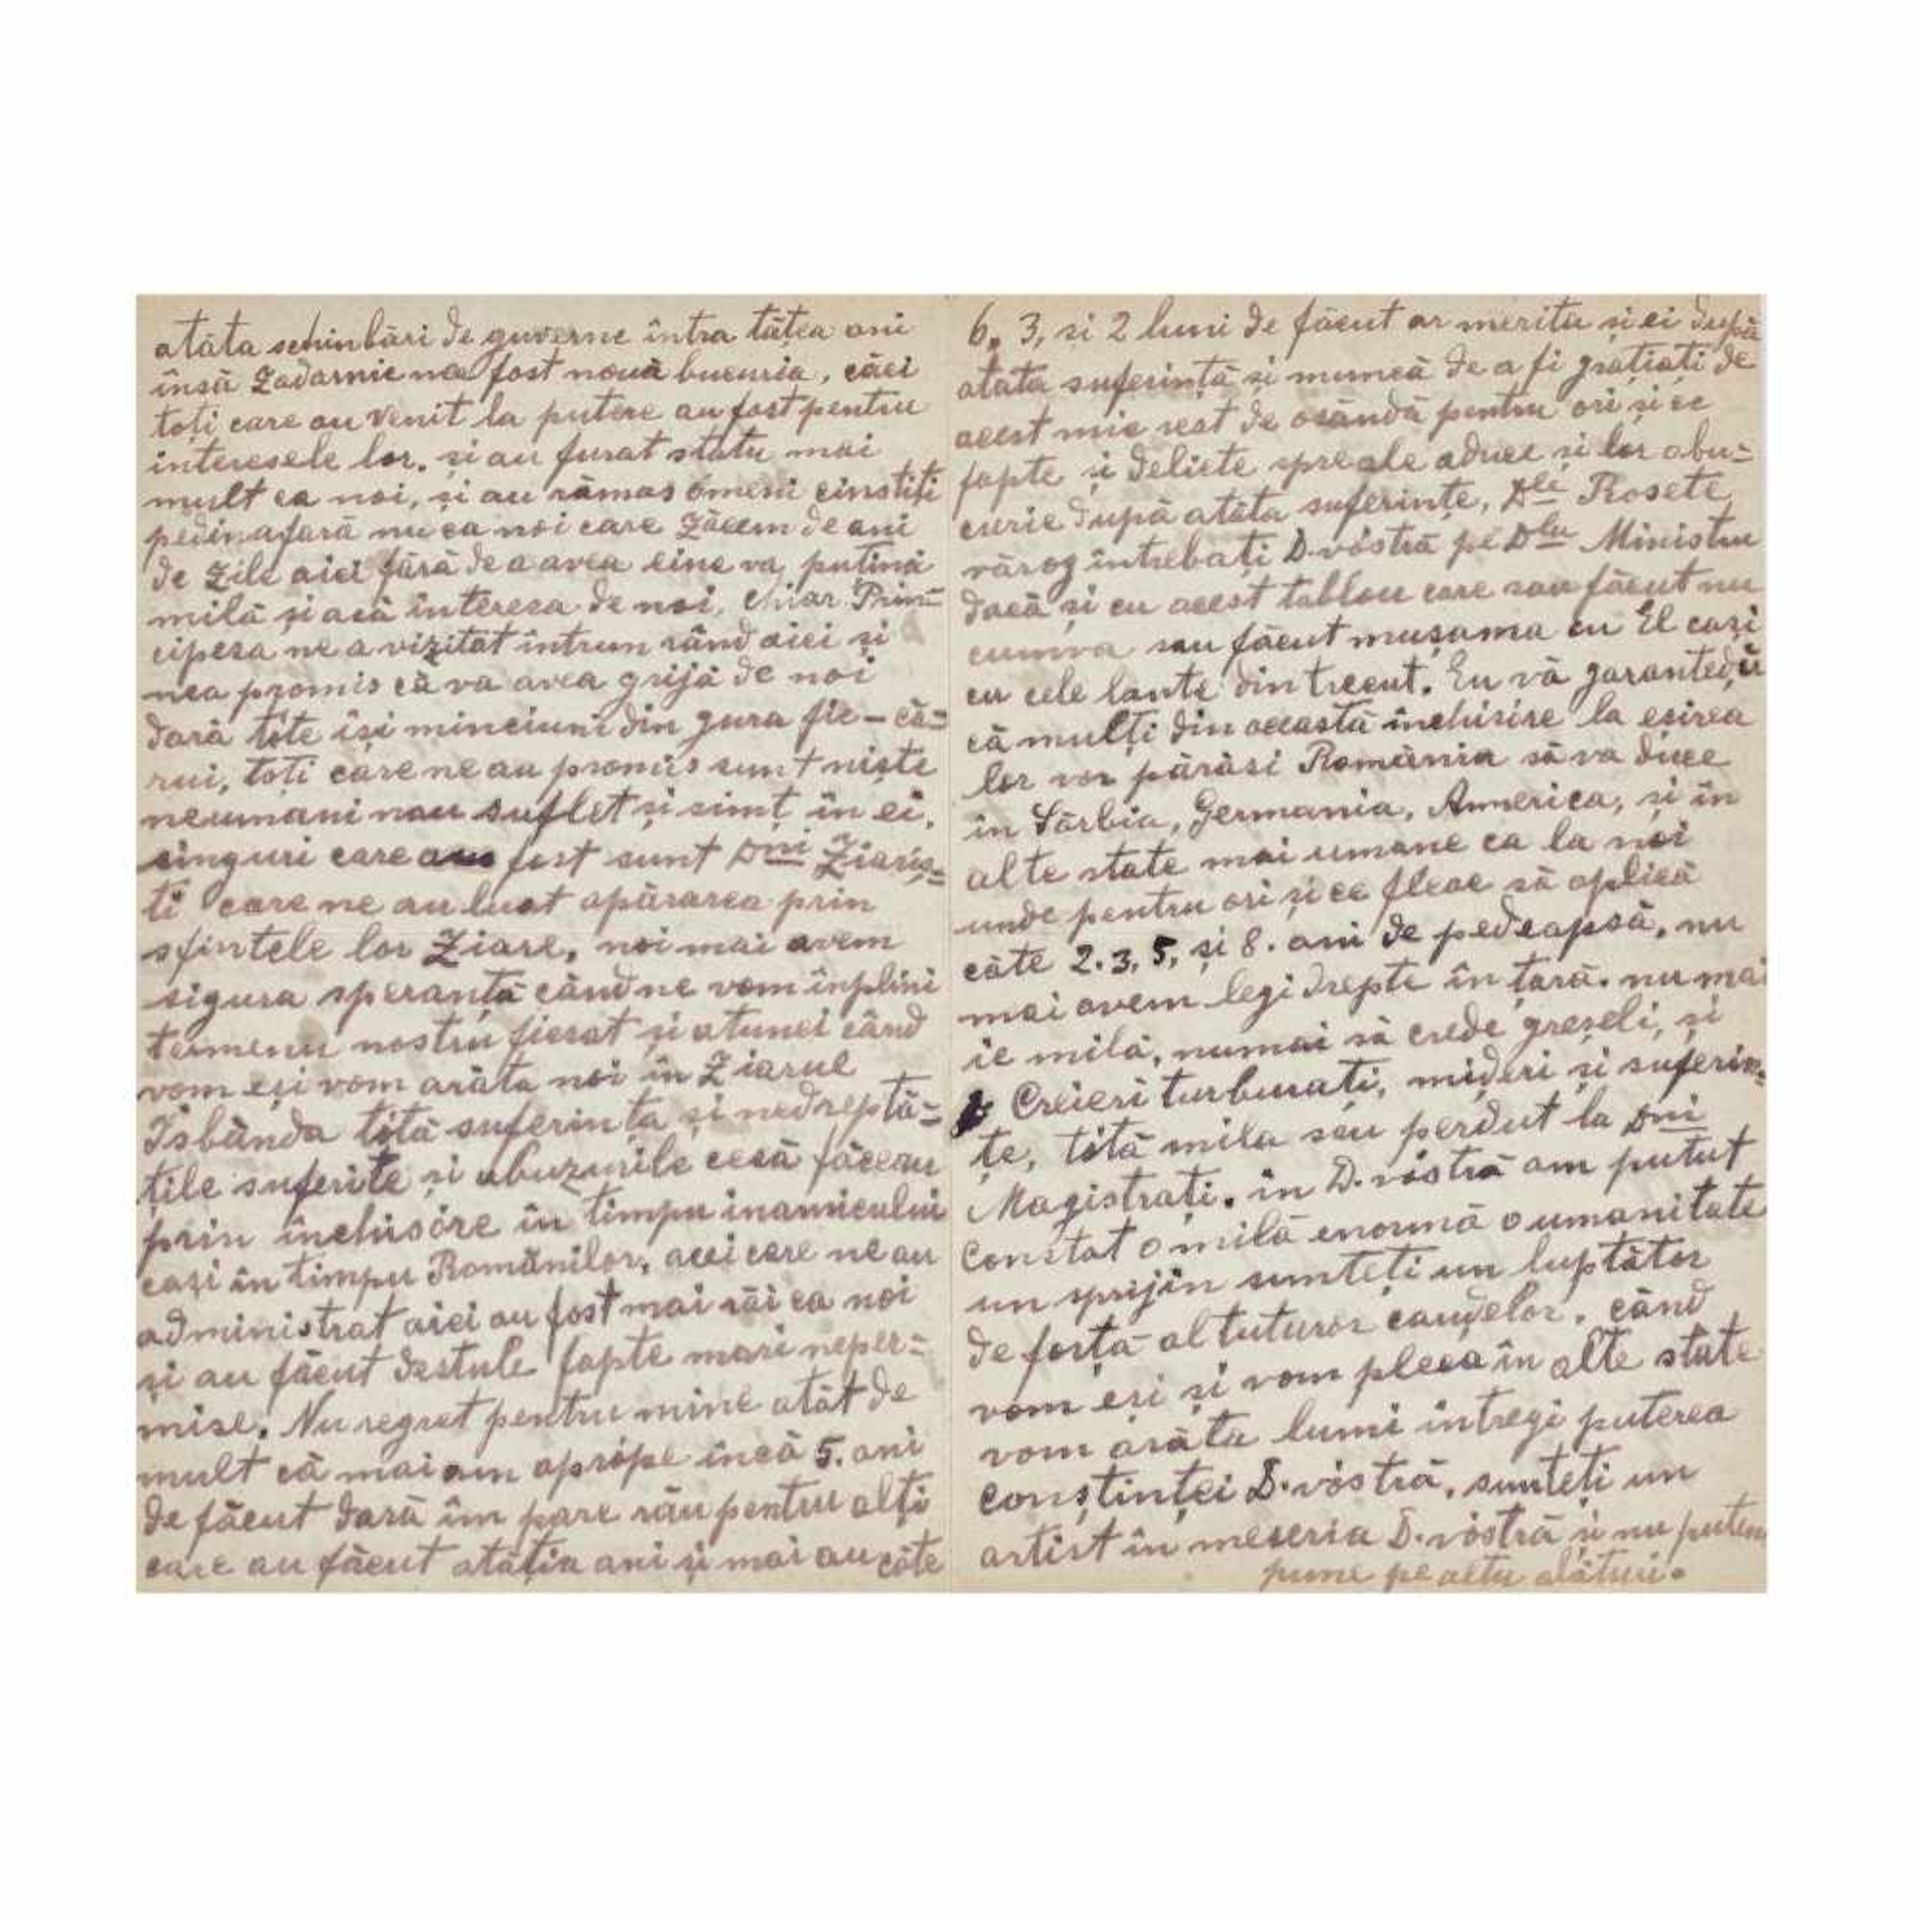 atâta schinbări de guverne întra tâtea ani
însă Zadarnic na fost nouă bucuria, căci
toți care au venit la putere au fost pentru
interesele lor. și au furat statu mai
mult ca noi, și au rămas ómeni cinstiți
pedinafară nu ca noi care Zăcem de ani
de Zile aici fără de a avea cine va putină
milă și asă interesa de noi, chiar Prin=
cipesa ne a vizitat intrun rând aici și
nea promis că va avea grijă de noi
dară tóte isi minciuni din gura fie-că=
rui, toți care ne au promis sunt niște
neumani nau suflet și simt in ei,
singuri care au fost sunt Dnii Ziariș=
ti care ne au luat apărarea prin
sfintele lor Ziare, noi mai avem
sigura speranță când ne vom înplini
termenu nostru fiecat și atunci când
vom eși vom arăta noi în Ziarul
Isbânda tótă suferința și nedreptă=
țile suferite și abuzurile cesă făceau
prin închisóre în timpu inamicului
cași în timpu Românilor, acei care ne au
administrat aici au fost mai răi ca noi
și au făcut destule fapte mari neper=
mise. Nu regret pentru mine atât de
mult că mai am aprópe încă 5. ani
de făcut dară îm pare rău pentru alți
care au făcut atâția ani și mai au câte
6, 3, si 2 luni de făcut ar merita și ei după
atata suferintă și muncă de a fi grațiați de
acest mic rest de osândă pentru ori și ce
fapte și delicte spre ale aduce și lor abu=
curie după atâta suferințe, Dle Rosete
vărog întrebați D.vóstră pe Dlu Ministru
dacă și cu acest tablou care sau făcut nu
cumva sau făcut mușama cu El cași
cu cele lante din trecut. Eu vă garanteḑ
că mulți din această închisire la eșirea
lor vor părăsi România să va duce
in Sărbia, Germania, America, și în
alte state mai umane ca la noi
unde pentru ori și ce fleac să aplică
câte 2.3, 5, și 8. ani de pedeapsă, nu
mai avem legi drepte în țară. nu mai
ie milă, numai să crede greșeli, și
Creieri turburati, miḑeri și suferin=
te, tótă mila sau perdut la Dnii
Magistrați. in D.vóstră am putut
Constat o milă enormă o umanitate
un sprijin sunteți un luptător
de forță al tuturor cauḑelor. când
vom eși și vom pleca în alte state
vom arăta lumi întregi puterea
conștinței D.vóstră, sunteți un
artist în meseria D.vóstră și nu putem
pune pe altu alături.